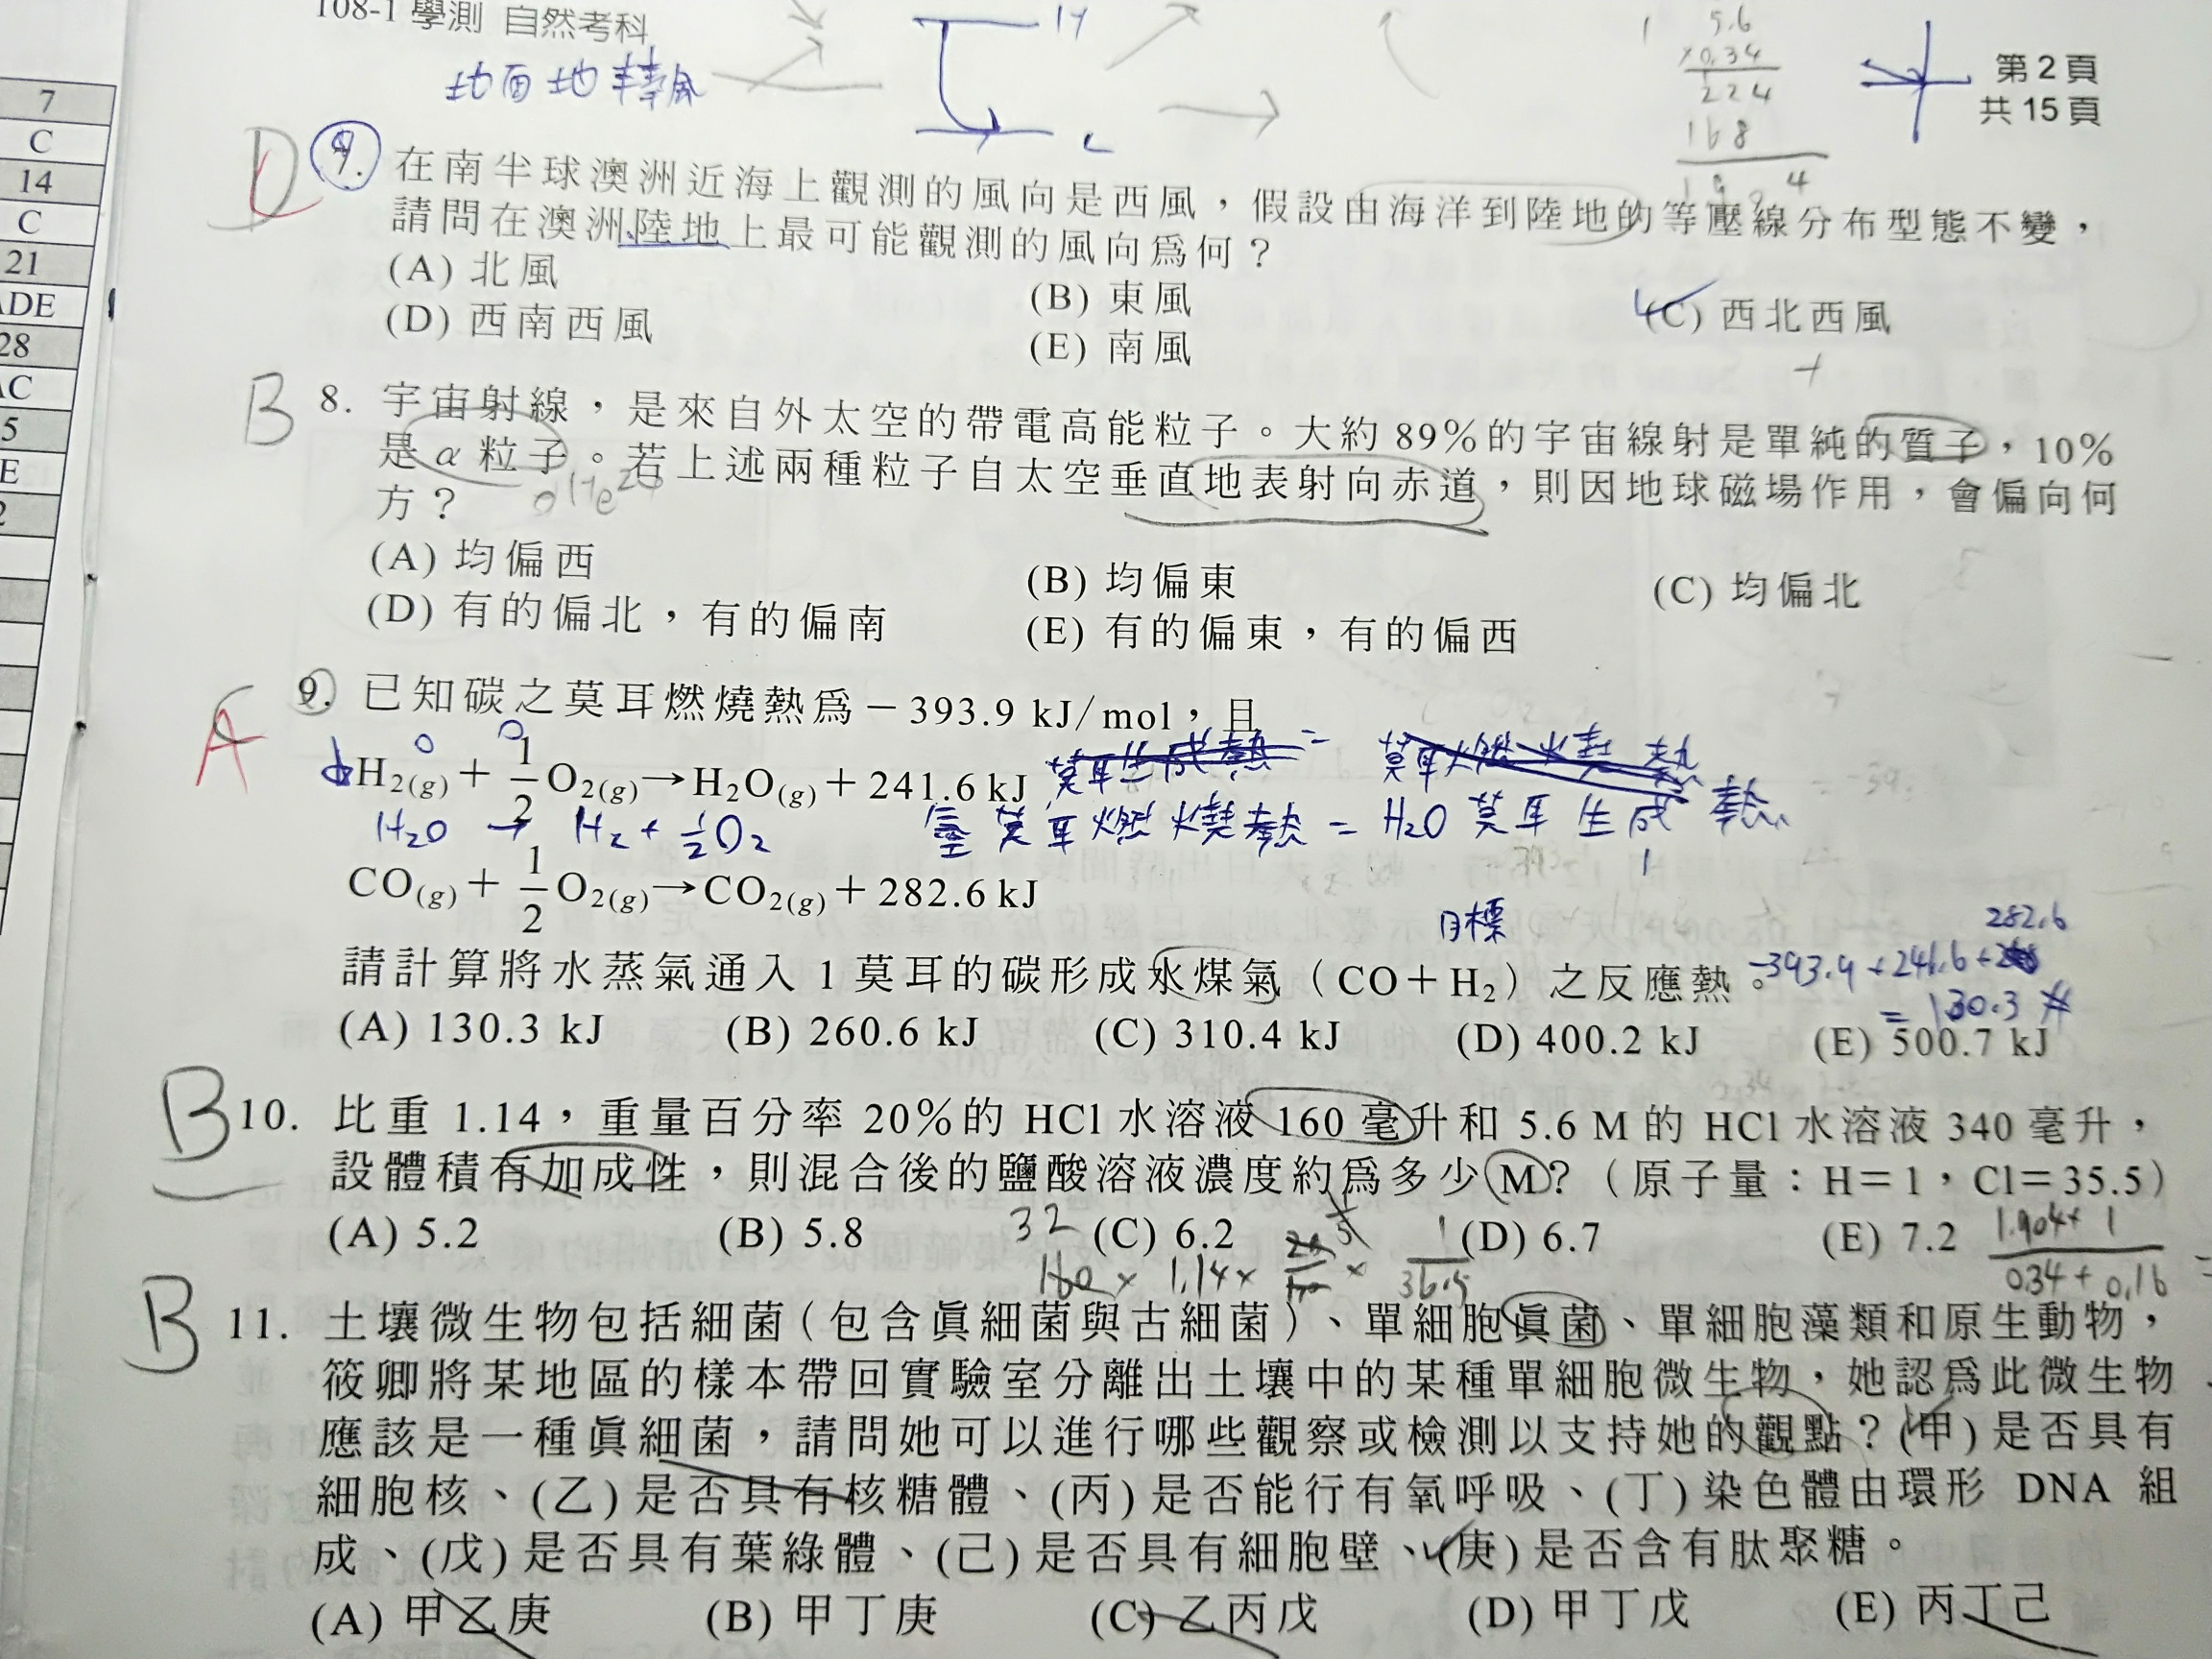 108-1 學測 自然考科
地面地轉風
H
L
5.6
×0.34
224
168
第2頁
共15頁
7
C
14
C
21
ADE
28
AC
5
E
2
D
7. 在南半球澳洲近海上觀測的風向是西風，假設由海洋到陸地的等壓線分布型態不變，
請問在澳洲陸地上最可能觀測的風向爲何？
(A) 北風
(B) 東風
(C) 西北西風
(D) 西南西風
(E) 南風
B
8. 宇宙射線，是來自外太空的帶電高能粒子。大約 89%的宇宙線射是單純的質子，10%
是 α 粒子。若上述兩種粒子自太空垂直地表射向赤道，則因地球磁場作用，會偏向何
方？
(A) 均偏西
(B) 均偏東
(C) 均偏北
(D) 有的偏北，有的偏南
(E) 有的偏東，有的偏西
A
9. 已知碳之莫耳燃燒熱爲－393.9 kJ/mol，且
H2(g)＋1/2 O2(g)→H2O(g)＋241.6 kJ
莫耳生成熱 = 莫耳燃燒熱
H2O → H2 + 1/2 O2
莫耳燃燒熱 = H2O 莫耳生成熱
CO(g)＋1/2 O2(g)→CO2(g)＋282.6 kJ
目標
282.6
請計算將水蒸氣通入 1 莫耳的碳形成水煤氣（CO＋H2）之反應熱。
-393.9+241.6+
= 130.3
(A) 130.3 kJ
(B) 260.6 kJ
(C) 310.4 kJ
(D) 400.2 kJ
(E) 500.7 kJ
B
10. 比重 1.14，重量百分率 20%的 HCl 水溶液 160 毫升和 5.6 M 的 HCl 水溶液 340 毫升，
設體積有加成性，則混合後的鹽酸溶液濃度約爲多少 M？（原子量：H＝1，Cl＝35.5）
(A) 5.2
(B) 5.8
(C) 6.2
(D) 6.7
(E) 7.2
32
160 × 1.14 × 20/100 × 1/36.5
1.904+1
0.34+0.16
B
11. 土壤微生物包括細菌（包含眞細菌與古細菌）、單細胞眞菌、單細胞藻類和原生動物，
筱卿將某地區的樣本帶回實驗室分離出土壤中的某種單細胞微生物，她認爲此微生物
應該是一種眞細菌，請問她可以進行哪些觀察或檢測以支持她的觀點？(甲)是否具有
細胞核、(乙)是否具有核糖體、(丙)是否能行有氧呼吸、(丁)染色體由環形 DNA 組
成、(戊)是否具有葉綠體、(己)是否具有細胞壁、(庚)是否含有肽聚糖。
(A) 甲乙庚
(B) 甲丁庚
(C) 乙丙戊
(D) 甲丁戊
(E) 丙丁己